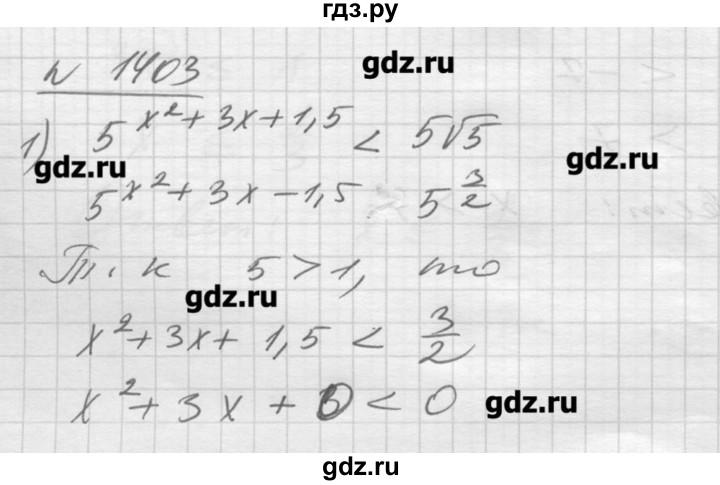 гдз.ру
N 1403
gdz.ru
1) 5^{x²+3x+1,5} < 5√5
gdz.ru
gdz.ru
5^{x²+3x-1,5} 5^{3/2}
Т. к 5 > 1, то
gdz.ru
x²+3x+1,5 < 3/2
x²+3x+0 < 0
gdz.ru
gdz.ru